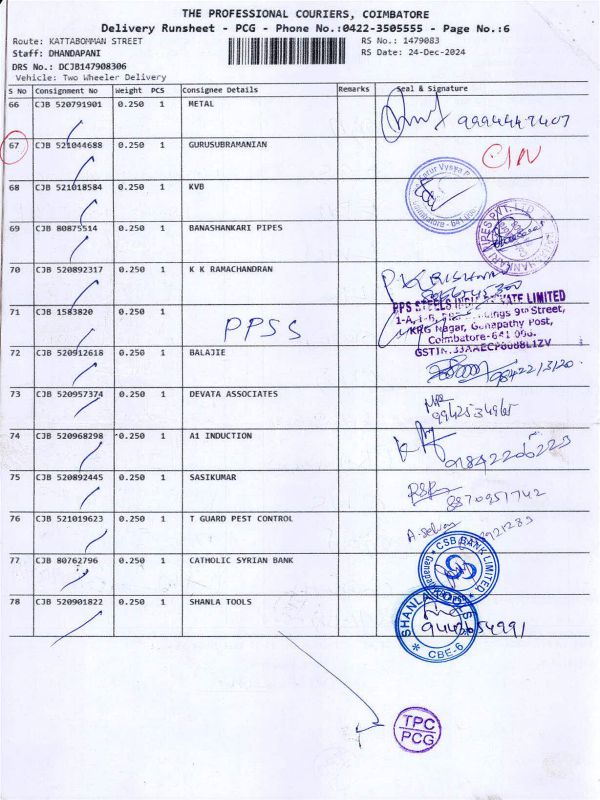 THE PROFESSIONAL COURIERS, COIMBATORE
Delivery Runsheet - PCG - Phone No.:0422-3505555 - Page No.:6
Route: KATTABOMMAN STREET RS No.: 1479083
Staff: DHANDAPANI RS Date: 24-Dec-2024
DRS No.: DCJB147908306
Vehicle: Two Wheeler Delivery
S No Consignment No Weight PCS Consignee Details Remarks Seal & Signature
66 CJB 520791901 0.250 1 METAL
67 CJB 521044688 0.250 1 GURUSUBRAMANIAN
68 CJB 521018584 0.250 1 KVB
Coimbatore - 641
69 CJB 80875514 0.250 1 BANASHANKARI PIPES
70 CJB 520892317 0.250 1 K K RAMACHANDRAN
71 CJB 1583820 1 PPSS
PPS STEELS INDIA PRIVATE LIMITED
9th Street,
KRG Nagar, Ganapathy Post,
Coimbatore-641 006.
72 CJB 520912618 0.250 1 BALAJIE
73 CJB 520957374 0.250 1 DEVATA ASSOCIATES
9942534965
74 CJB 520968298 0.250 1 A1 INDUCTION
75 CJB 520892445 0.250 1 SASIKUMAR
8870951742
76 CJB 521019623 0.250 1 T GUARD PEST CONTROL
77 CJB 80762796 0.250 1 CATHOLIC SYRIAN BANK
CSB BANK LIMITED
78 CJB 520901822 0.250 1 SHANLA TOOLS
SHANLA TOOLS
CBE-6
TPC
PCG